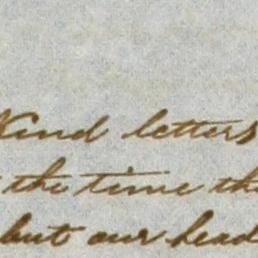 Kind letters
the time the
but our head